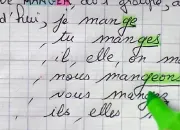 MANGER du 1er groupe, a
d'hui, je mange
, tu manges
, il, elle, on m
, nous mangeons
, vous mangez
, ils, elles